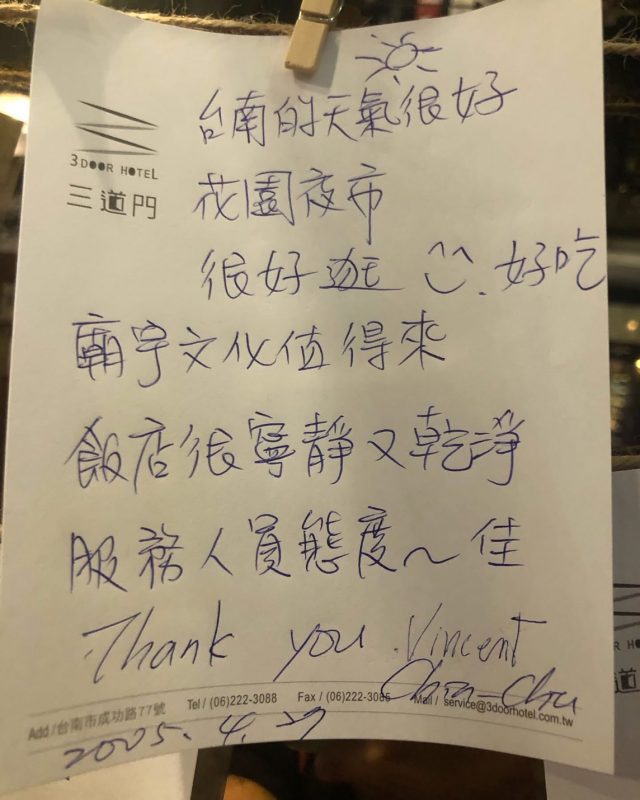 3 DOOR HOTEL
三道門
台南的天氣很好
花園夜市
很好逛 ^^. 好吃
廟宇文化值得來
飯店很寧靜又乾淨
服務人員態度～佳
Thank you. Vincent
Add / 台南市成功路77號 Tel / (06)222-3088 Fax / (06)222-3085 Mail / service@3doorhotel.com.tw
2005.4.27